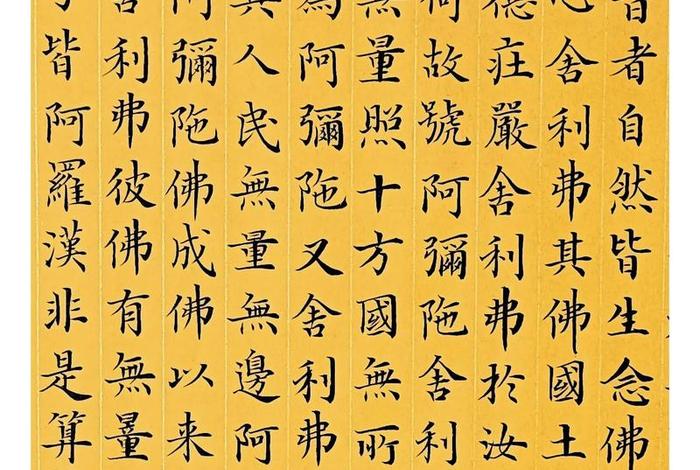 音者自然皆生念佛
心舍利弗其佛國土
德莊嚴舍利弗於汝
何故號阿彌陀舍利
無量照十方國無所
為阿彌陀又舍利弗
其人民無量無邊阿
阿彌陀佛成佛以来
舍利弗彼佛有無量
子皆阿羅漢非是算